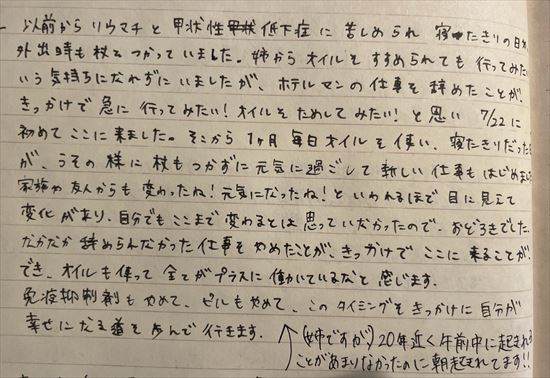 以前からリウマチと甲状性低下症に苦しめられ 寝たきりの日々
外出時も杖をつかっていました。姉からオイルをすすめられても行ってみたい
いう気持ちになれずにいましたが、ホテルマンの仕事を辞めたことが、
きっかけで急に行ってみたい！オイルをためしてみたい！と思い 7/22に
初めてここに来ました。そこから1ヶ月毎日オイルを使い、寝たきりだった
が、うその様に杖もつかずに元気に過ごして新しい仕事もはじめまし
家族や友人からも変わったね！元気になったね！といわれるほど目に見えて
変化があり、自分でもここまで変わるとは思っていなかったので、おどろきでした。
なかなか辞められなかった仕事をやめたことが、きっかけでここに来ることが
でき、オイルも使って全てがプラスに働いているなと感じます。
免疫抑制剤もやめて、ピルもやめて、このタイミングをきっかけに自分が
幸せになる道を歩んで行きます。
↑(姉ですが)20年近く午前中に起きれる
ことがあまりなかったのに朝起きれてます!!